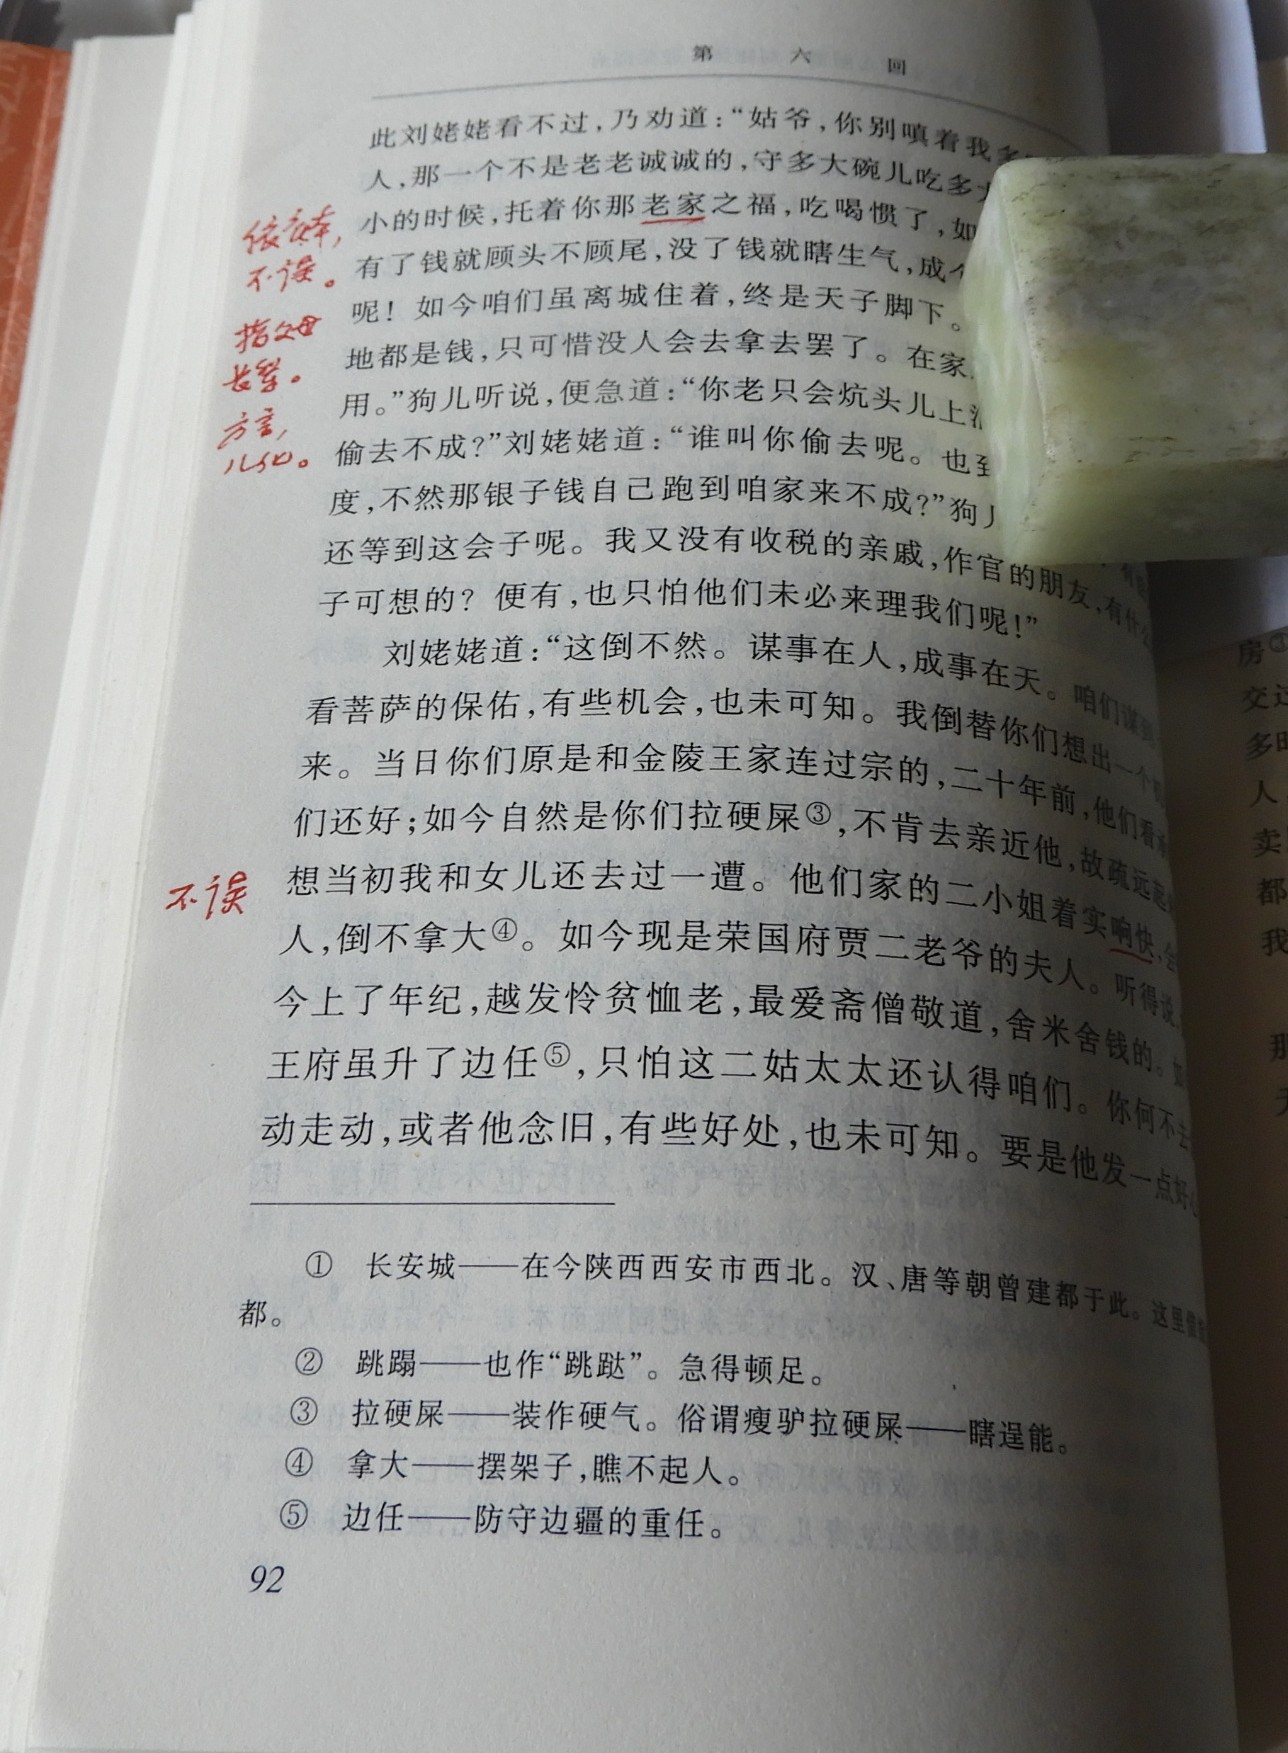 第六回
此刘姥姥看不过，乃劝道：“姑爷，你别嗔着我多
人，那一个不是老老诚诚的，守多大碗儿吃多大
小的时候，托着你那老家之福，吃喝惯了，如
有了钱就顾头不顾尾，没了钱就瞎生气，成个
呢！如今咱们虽离城住着，终是天子脚下。
地都是钱，只可惜没人会去拿去罢了。在家
用。”狗儿听说，便急道：“你老只会炕头儿上
偷去不成？”刘姥姥道：“谁叫你偷去呢。也到
度，不然那银子钱自己跑到咱家来不成？”狗儿
还等到这会子呢。我又没有收税的亲戚，作官的朋友，有什么
子可想的？便有，也只怕他们未必来理我们呢！”
刘姥姥道：“这倒不然。谋事在人，成事在天。咱们谋到
看菩萨的保佑，有些机会，也未可知。我倒替你们想出一个机
来。当日你们原是和金陵王家连过宗的，二十年前，他们看承
们还好；如今自然是你们拉硬屎③，不肯去亲近他，故疏远起
想当初我和女儿还去过一遭。他们家的二小姐着实响快，会
人，倒不拿大④。如今现是荣国府贾二老爷的夫人。听得说，
今上了年纪，越发怜贫恤老，最爱斋僧敬道，舍米舍钱的。如
王府虽升了边任⑤，只怕这二姑太太还认得咱们。你何不去
动走动，或者他念旧，有些好处，也未可知。要是他发一点好心
① 长安城——在今陕西西安市西北。汉、唐等朝曾建都于此。这里借
都。
② 跳蹋——也作“跳跶”。急得顿足。
③ 拉硬屎——装作硬气。俗谓瘦驴拉硬屎——瞎逞能。
④ 拿大——摆架子，瞧不起人。
⑤ 边任——防守边疆的重任。
92
不误。
指父母
长辈。
方言，
不误
房③
交迈
多时
人
卖
都
我